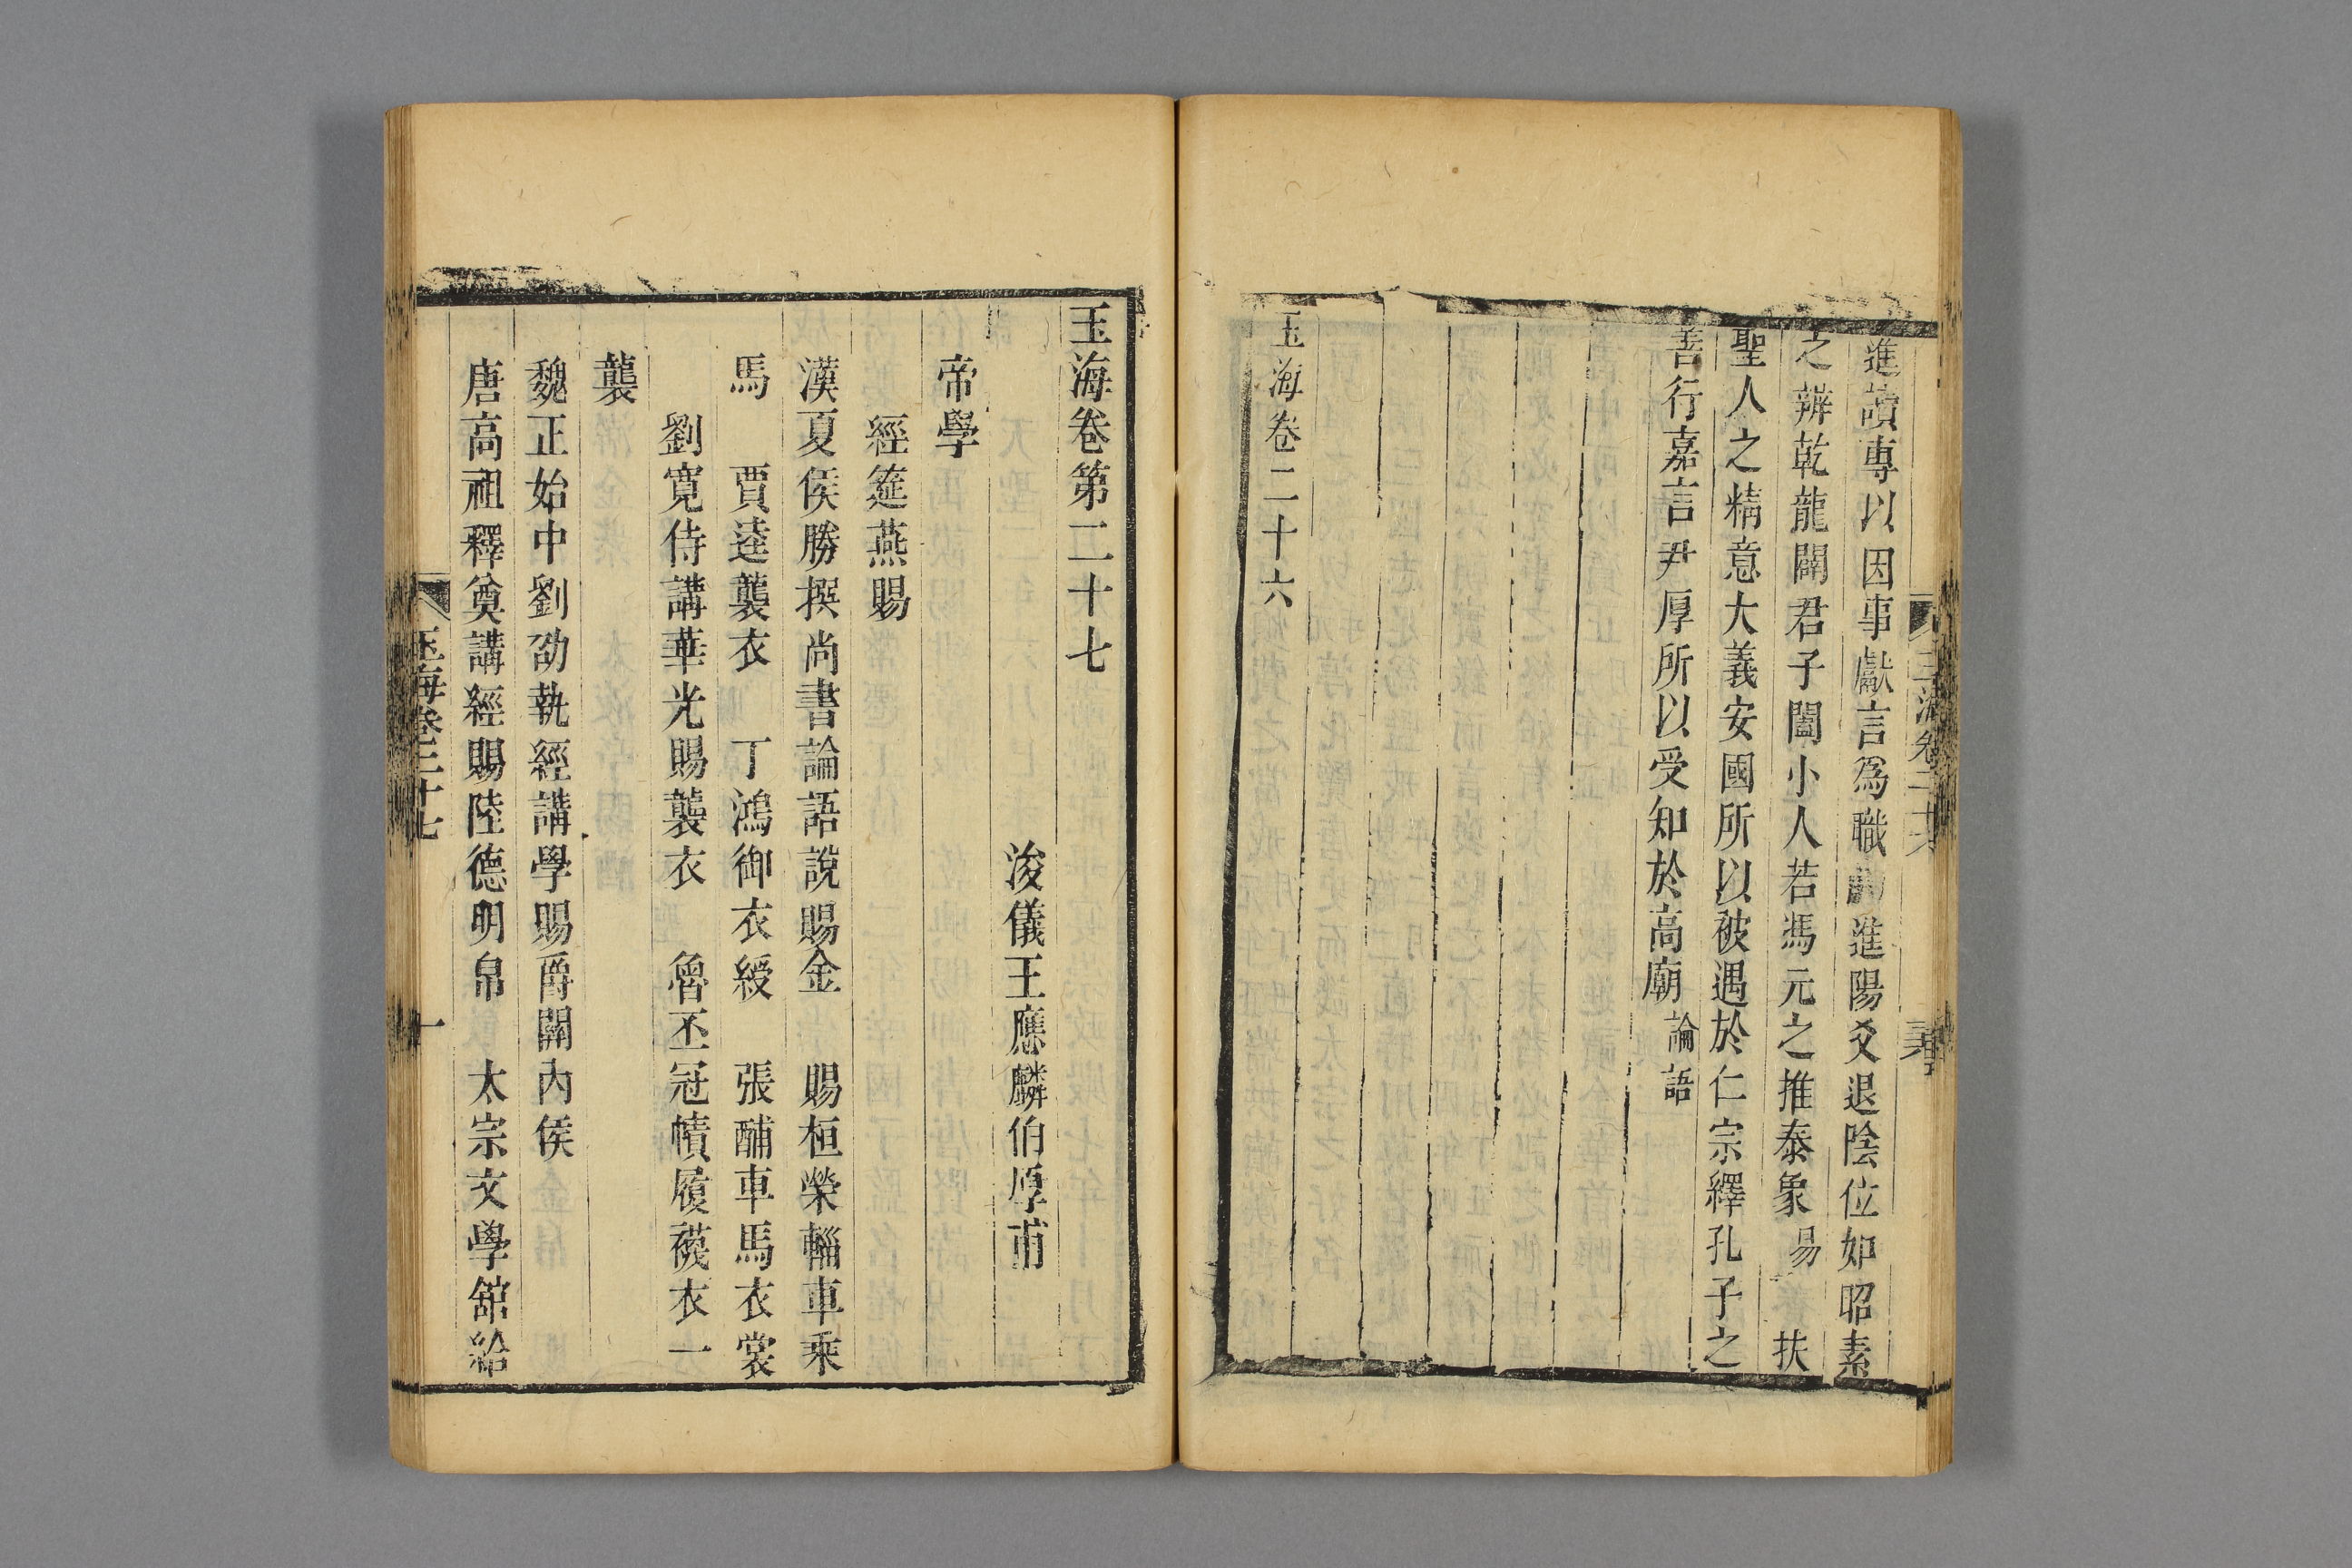 進讀專以因事獻言爲職進陽爻退陰位如昭素
之辨乾龍闢君子闔小人若馮元之推泰象易 扶
聖人之精意大義安國所以被遇於仁宗繹孔子之
善行嘉言尹厚所以受知於高廟論語
玉海卷二十六
玉海卷第二十七
浚儀王應麟伯厚甫
帝學
經筵燕賜
漢夏侯勝撰尚書論語說賜金 賜桓榮輜車乘
馬 賈逵襲衣 丁鴻御衣綬 張酺車馬衣裳
劉寛侍講華光賜襲衣 魯丕冠幘履襪衣一
襲
魏正始中劉劭執經講學賜爵關內侯
唐高祖釋奠講經賜陸德明帛 太宗文學舘給
玉海卷二十七 一